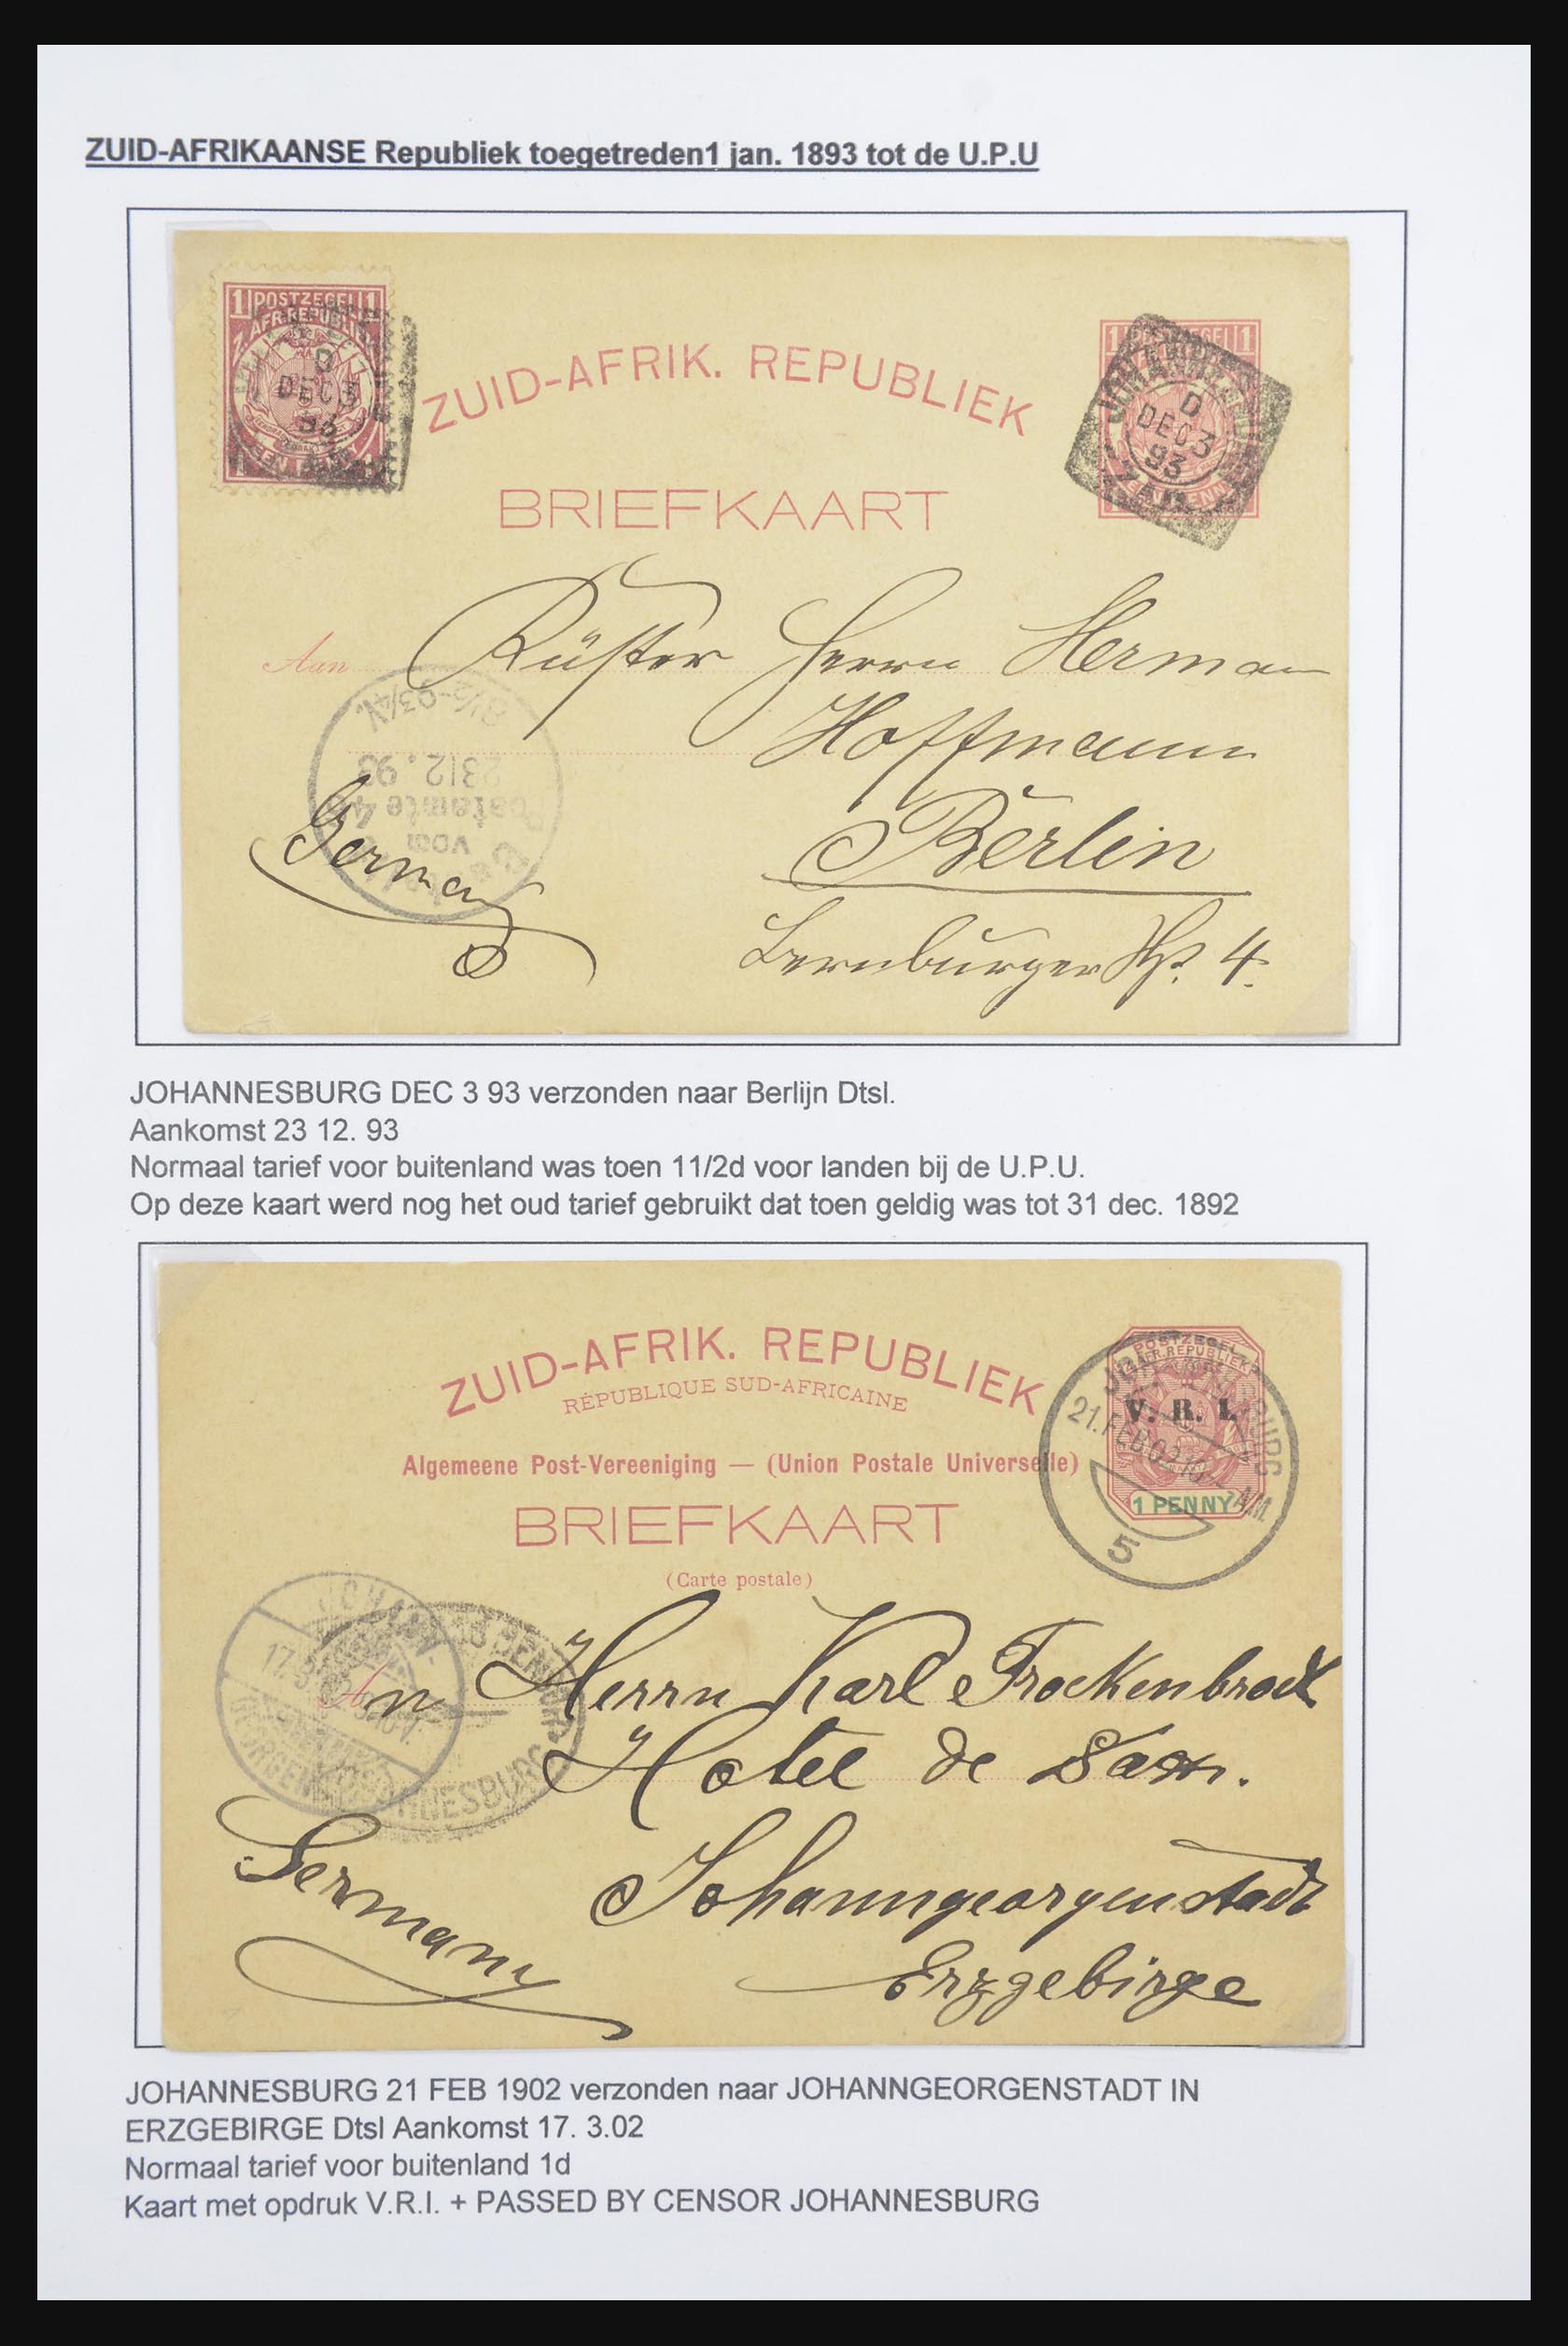 ZUID-AFRIKAANSE Republiek toegetreden1 jan. 1893 tot de U.P.U
1 POSTZEGEL 1
Z. AFR. REPUBLIEK
D
DEC 3
93
EEN PENNY
ZUID-AFRIK. REPUBLIEK
1 POSTZEGEL 1
JOHANNESBURG
D
DEC 3
93
Z.A.R.
BRIEFKAART
Aan Küster Herrn Herman
Hoffmann
Berlin
Bernburger Str. 4.
Germany
Bestellt
vom
Postamte
23 12. 93
8½-93/4V.
JOHANNESBURG DEC 3 93 verzonden naar Berlijn Dtsl.
Aankomst 23 12. 93
Normaal tarief voor buitenland was toen 11/2d voor landen bij de U.P.U.
Op deze kaart werd nog het oud tarief gebruikt dat toen geldig was tot 31 dec. 1892
ZUID-AFRIK. REPUBLIEK
RÉPUBLIQUE SUD-AFRICAINE
Algemeene Post-Vereeniging — (Union Postale Universelle)
BRIEFKAART
(Carte postale)
POSTZEGEL
Z. AFR. REPUBLIEK
V. R. I.
1 PENNY
JOHANNESBURG
21. FEB 02. 10 AM.
5
JOHANN-
17. 3
GEORGENSTADT
CENSOR
JOHANNESBURG
An Herrn Karl Trockenbrodt
Hotel de Saxe.
Johanngeorgenstadt
Erzgebirge
Germany
JOHANNESBURG 21 FEB 1902 verzonden naar JOHANNGEORGENSTADT IN
ERZGEBIRGE Dtsl Aankomst 17. 3.02
Normaal tarief voor buitenland 1d
Kaart met opdruk V.R.I. + PASSED BY CENSOR JOHANNESBURG